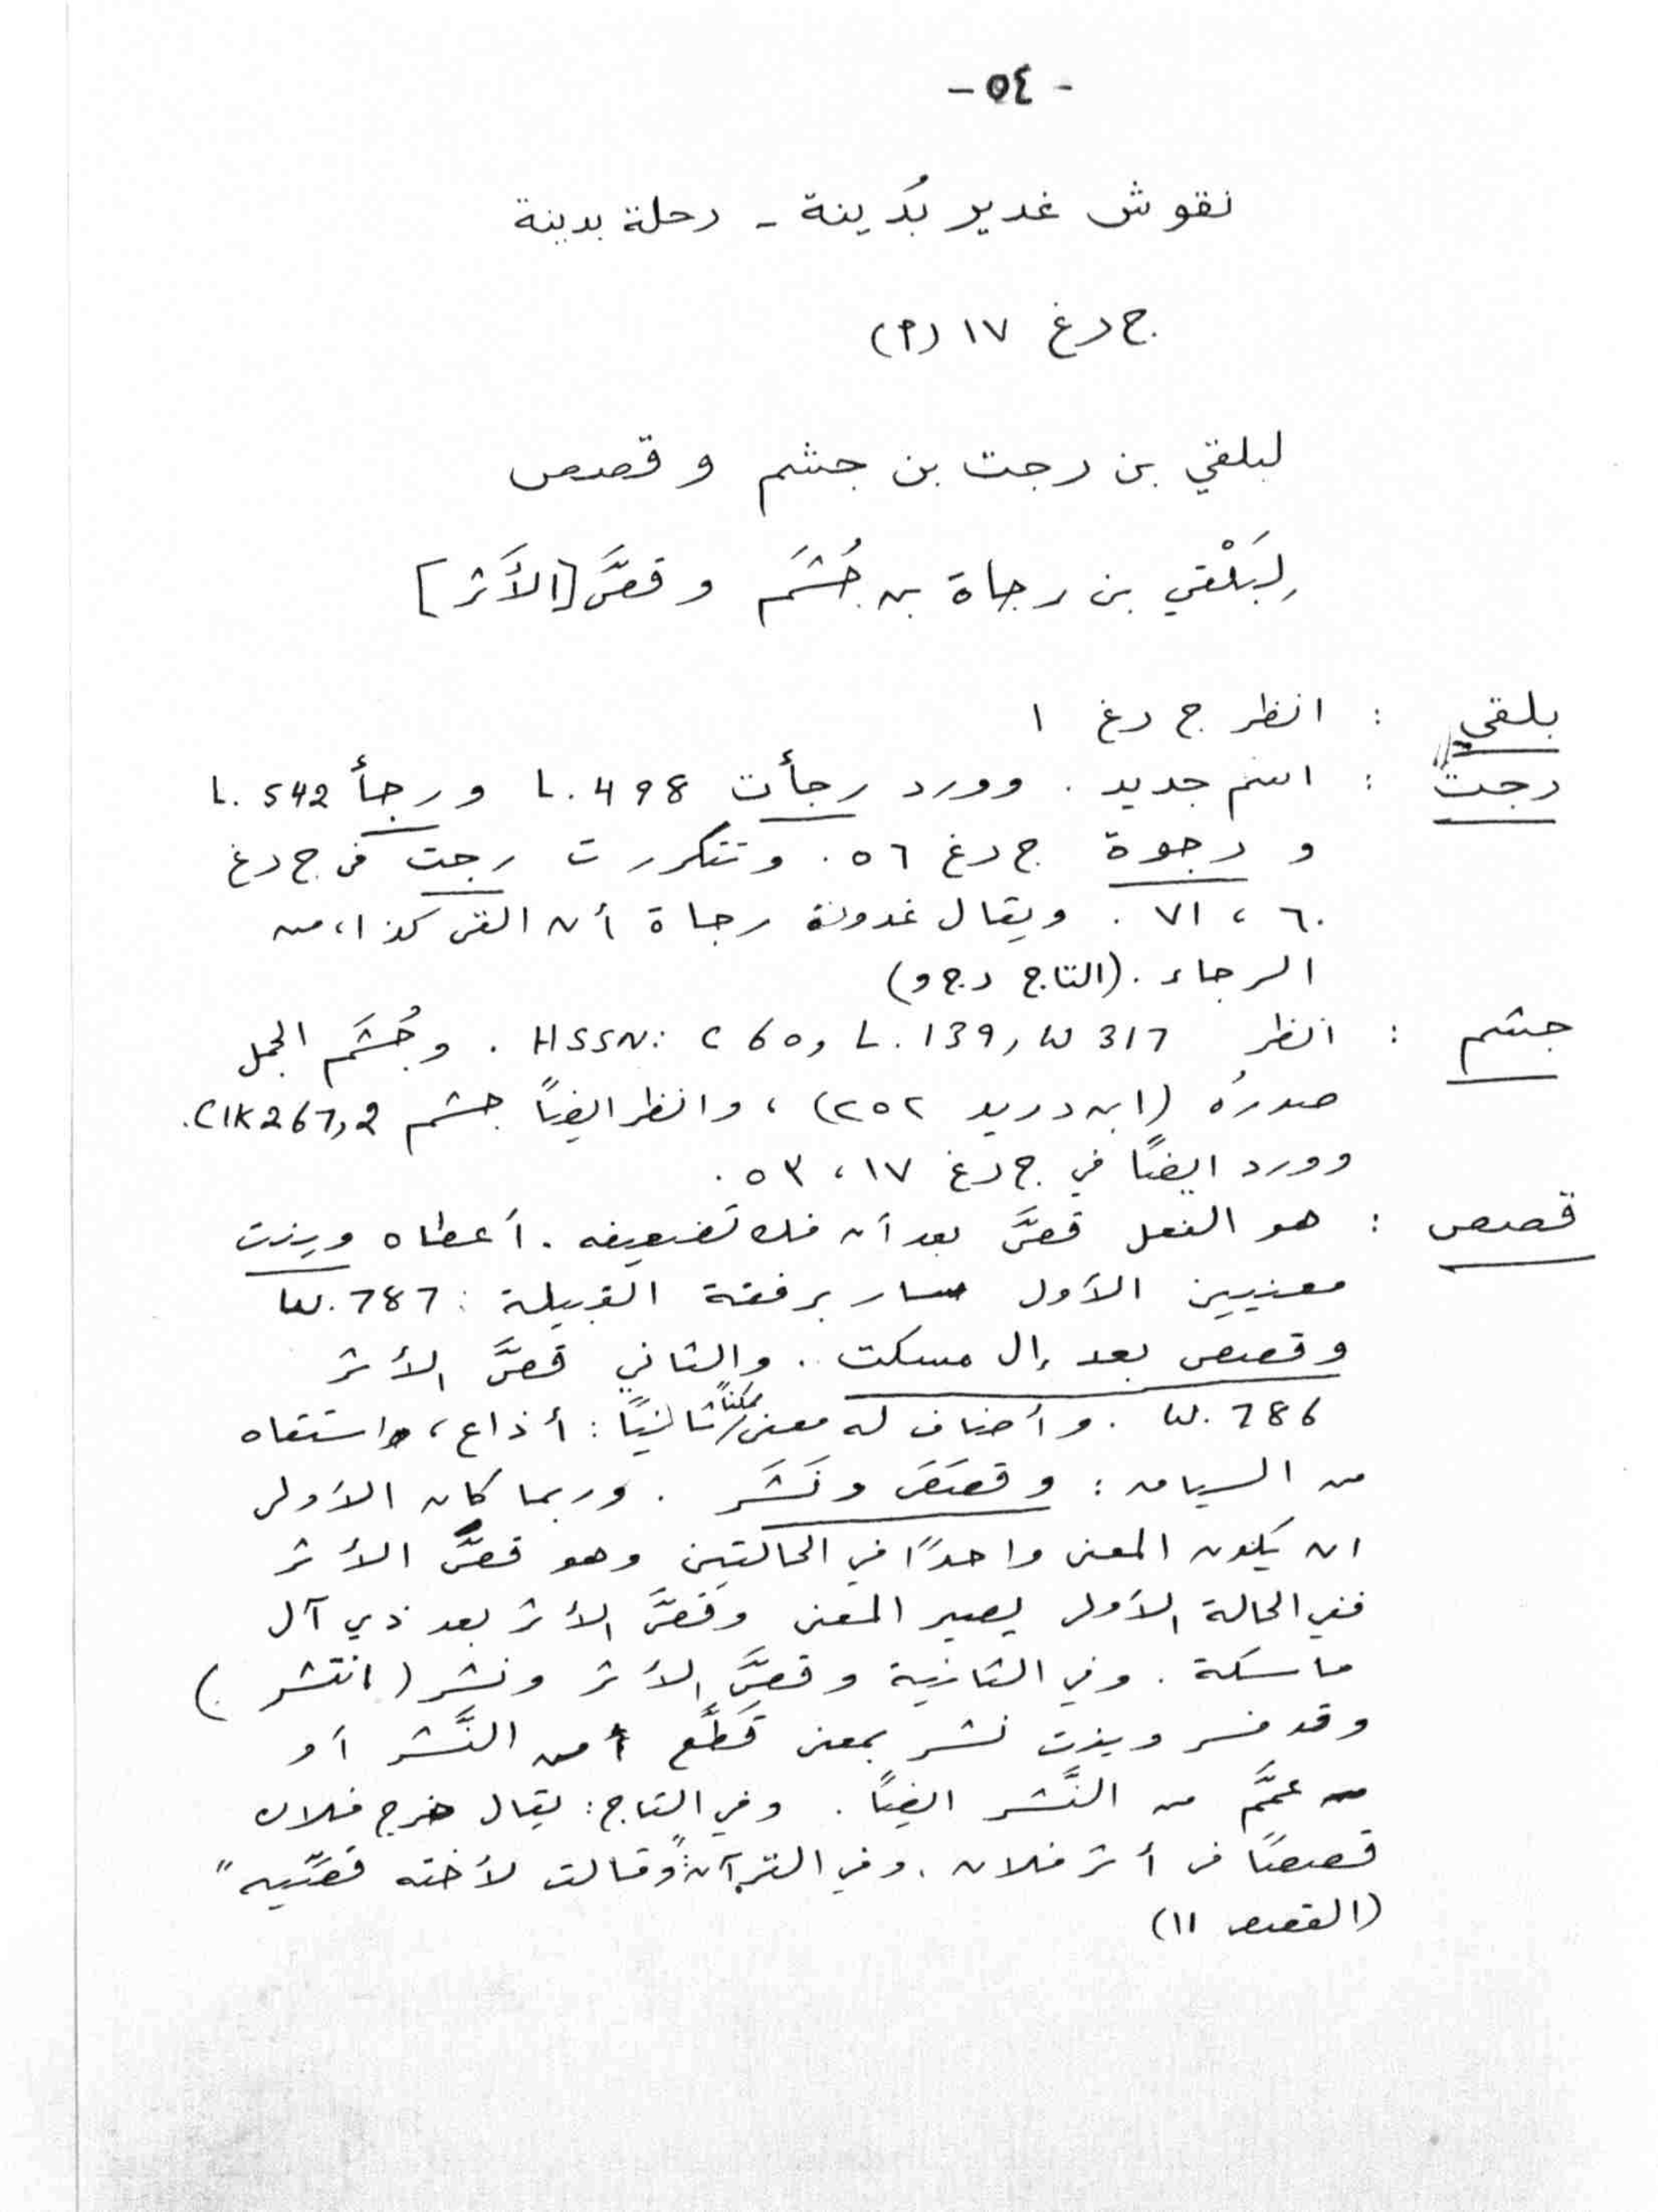 - ٥٤ -
نقوش غدير بُدينة - رحلة بدينة
ج رغ ١٧ (٢)
لبلقي بن رجت بن جشم و قصص
لِبَلْقي بن رجاة بن جُشَم و قصَّ [الأَثر]
بلقي : انظر ج رغ ١
رجت : اسم جديد . وورد رجأت L. 498 و رجأ L. 542
و رجوة ج رغ ٥٦ . وتتكرر رجت في ج رغ
٦٠ ، ٧١ . ويقال غدوت رجاة أن ألقى كذا، من
الرجاء . (التاج رج و)
جشم : انظر HSSN: C 60, L. 139, W 317 . وجُشَم الجمل
صدرُه (ابن دريد ٢٥٢) ، وانظر ايضاً جشم CIK 267,2.
وورد ايضاً في ج رغ ١٧ ، ٥٣ .
قصص : هو الفعل قصَّ بعد أن فك تضعيفه . أعطاه وينت
معنيين الأول سار برفقة القبيلة : W. 787
وقصص بعد إل مسكت . والثاني قصَّ الأثر
W. 786 . وأضاف له معنى ممكناً ثالثاً : أذاع ، واستقاه
من السياق : وقصَصَ ونَشَر . وربما كان الأولى
ان يكون المعنى واحداً في الحالتين وهو قصَّ الأثر
ففي الحالة الأولى يصير المعنى وقصَّ الأثر بعد ذي آل
ماسكة . وفي الثانية وقصَّ الأثر ونشر (انتشر)
وقد فسر وينت نشر بمعنى قَطَّع من النَّشر أو
عمَّم من النَّشر ايضاً . وفي التاج : يقال خرج فلان
قصصاً في أثر فلان . وفي القرآن: "وقالت لأخته قصّيه"
(القصص ١١)